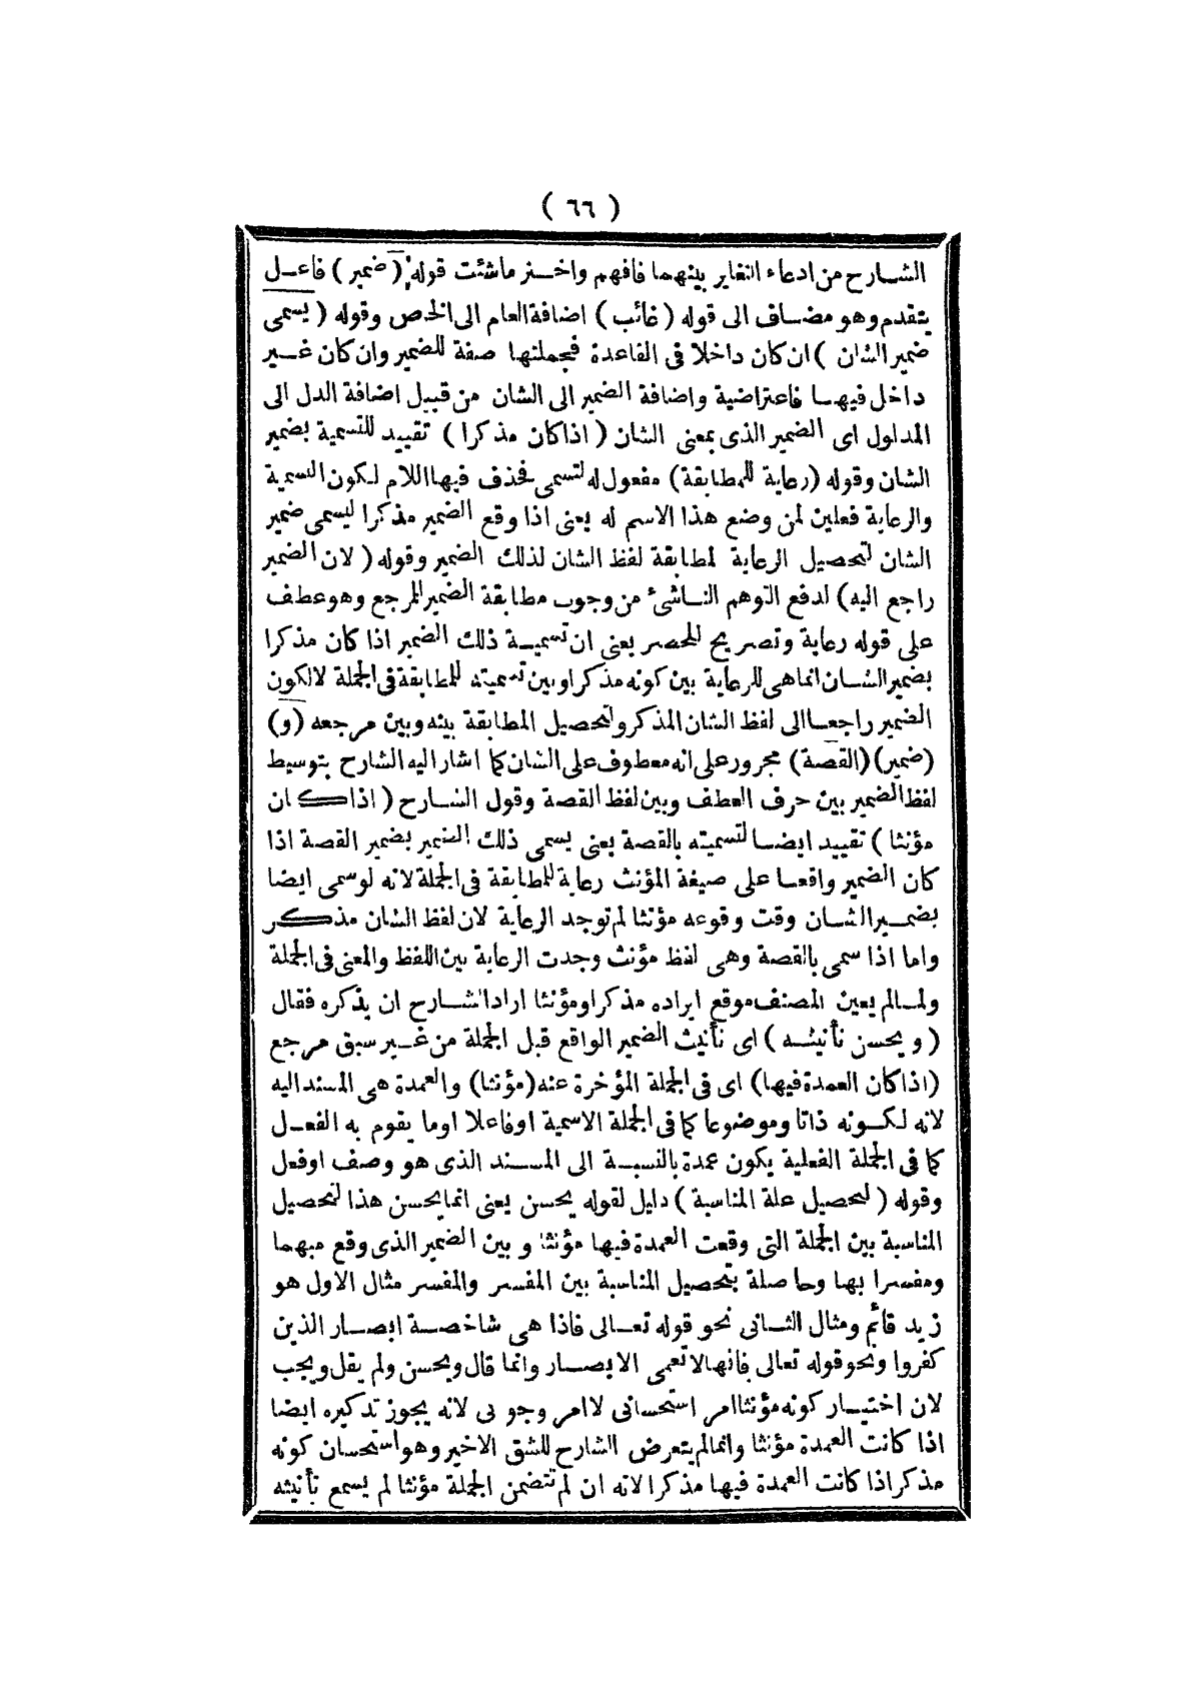 ( ٦٦ )
الشارح من ادعاء التغاير بينهما فافهم واختر ماشئت قوله (ضمير) فاعل
يتقدم وهو مضاف الى قوله (غائب) اضافة العام الى الخاص وقوله (يسمى
ضمير الشان) ان كان داخلا فى القاعدة فجملتها صفة للضمير وان كان غير
داخل فيها فاعتراضية واضافة الضمير الى الشان من قبيل اضافة الدل الى
المدلول اى الضمير الذى بمعنى الشان (اذا كان مذكرا) تقييد للتسمية بضمير
الشان وقوله (رعاية للمطابقة) مفعول له لتسمى فحذف فيها اللام لكون التسمية
والرعاية فعلين لمن وضع هذا الاسم له يعنى اذا وقع الضمير مذكرا ليسمى ضمير
الشان لتحصيل الرعاية لمطابقة لفظ الشان لذلك الضمير وقوله (لان الضمير
راجع اليه) لدفع التوهم الناشئ من وجوب مطابقة الضمير المرجع وهو عطف
على قوله رعاية وتصريح للحصر يعنى ان تسمية ذلك الضمير اذا كان مذكرا
بضمير الشان انما هى للرعاية بين كونه مذكرا وبين تسميته للمطابقة فى الجملة لا لكون
الضمير راجعا الى لفظ الشان المذكر ولتحصيل المطابقة بينه وبين مرجعه (و)
(ضمير) (القصة) مجرور على انه معطوف على الشان كما اشار اليه الشارح بتوسيط
لفظ الضمير بين حرف العطف وبين لفظ القصة وقول الشارح (اذا كان
مؤنثا) تقييد ايضا لتسميته بالقصة يعنى يسمى ذلك الضمير بضمير القصة اذا
كان الضمير واقعا على صيغة المؤنث رعاية للمطابقة فى الجملة لانه لو سمى ايضا
بضمير الشان وقت وقوعه مؤنثا لم توجد الرعاية لان لفظ الشان مذكر
واما اذا سمى بالقصة وهى لفظ مؤنث وجدت الرعاية بين اللفظ والمعنى فى الجملة
ولما لم يعين المصنف موقع ايراده مذكرا ومؤنثا اراد الشارح ان يذكره فقال
(و يحسن تأنيثه) اى تأنيث الضمير الواقع قبل الجملة من غير سبق مرجع
(اذا كان العمدة فيها) اى فى الجملة المؤخرة عنه (مؤنثا) والعمدة هى المسند اليه
لانه لكونه ذاتا وموضوعا كما فى الجملة الاسمية او فاعلا او ما يقوم به الفعل
كما فى الجملة الفعلية يكون عمدة بالنسبة الى المسند الذى هو وصف او فعل
وقوله (لتحصيل علة المناسبة) دليل لقوله يحسن يعنى انما يحسن هذا لتحصيل
المناسبة بين الجملة التى وقعت العمدة فيها مؤنثا و بين الضمير الذى وقع مبهما
ومفسرا بها وحاصلة بتحصيل المناسبة بين المفسر والمفسر مثال الاول هو
زيد قائم ومثال الثانى نحو قوله تعالى فاذا هى شاخصة ابصار الذين
كفروا ونحو قوله تعالى فانها لا تعمى الابصار وانما قال ويحسن ولم يقل ويجب
لان اختيار كونه مؤنثا امر استحسانى لا امر وجوبى لانه يجوز تذكيره ايضا
اذا كانت العمدة مؤنثا وانما لم يتعرض الشارح للشق الاخير وهو استحسان كونه
مذكرا اذا كانت العمدة فيها مذكرا لانه ان لم تتضمن الجملة مؤنثا لم يسمع تأنيثه